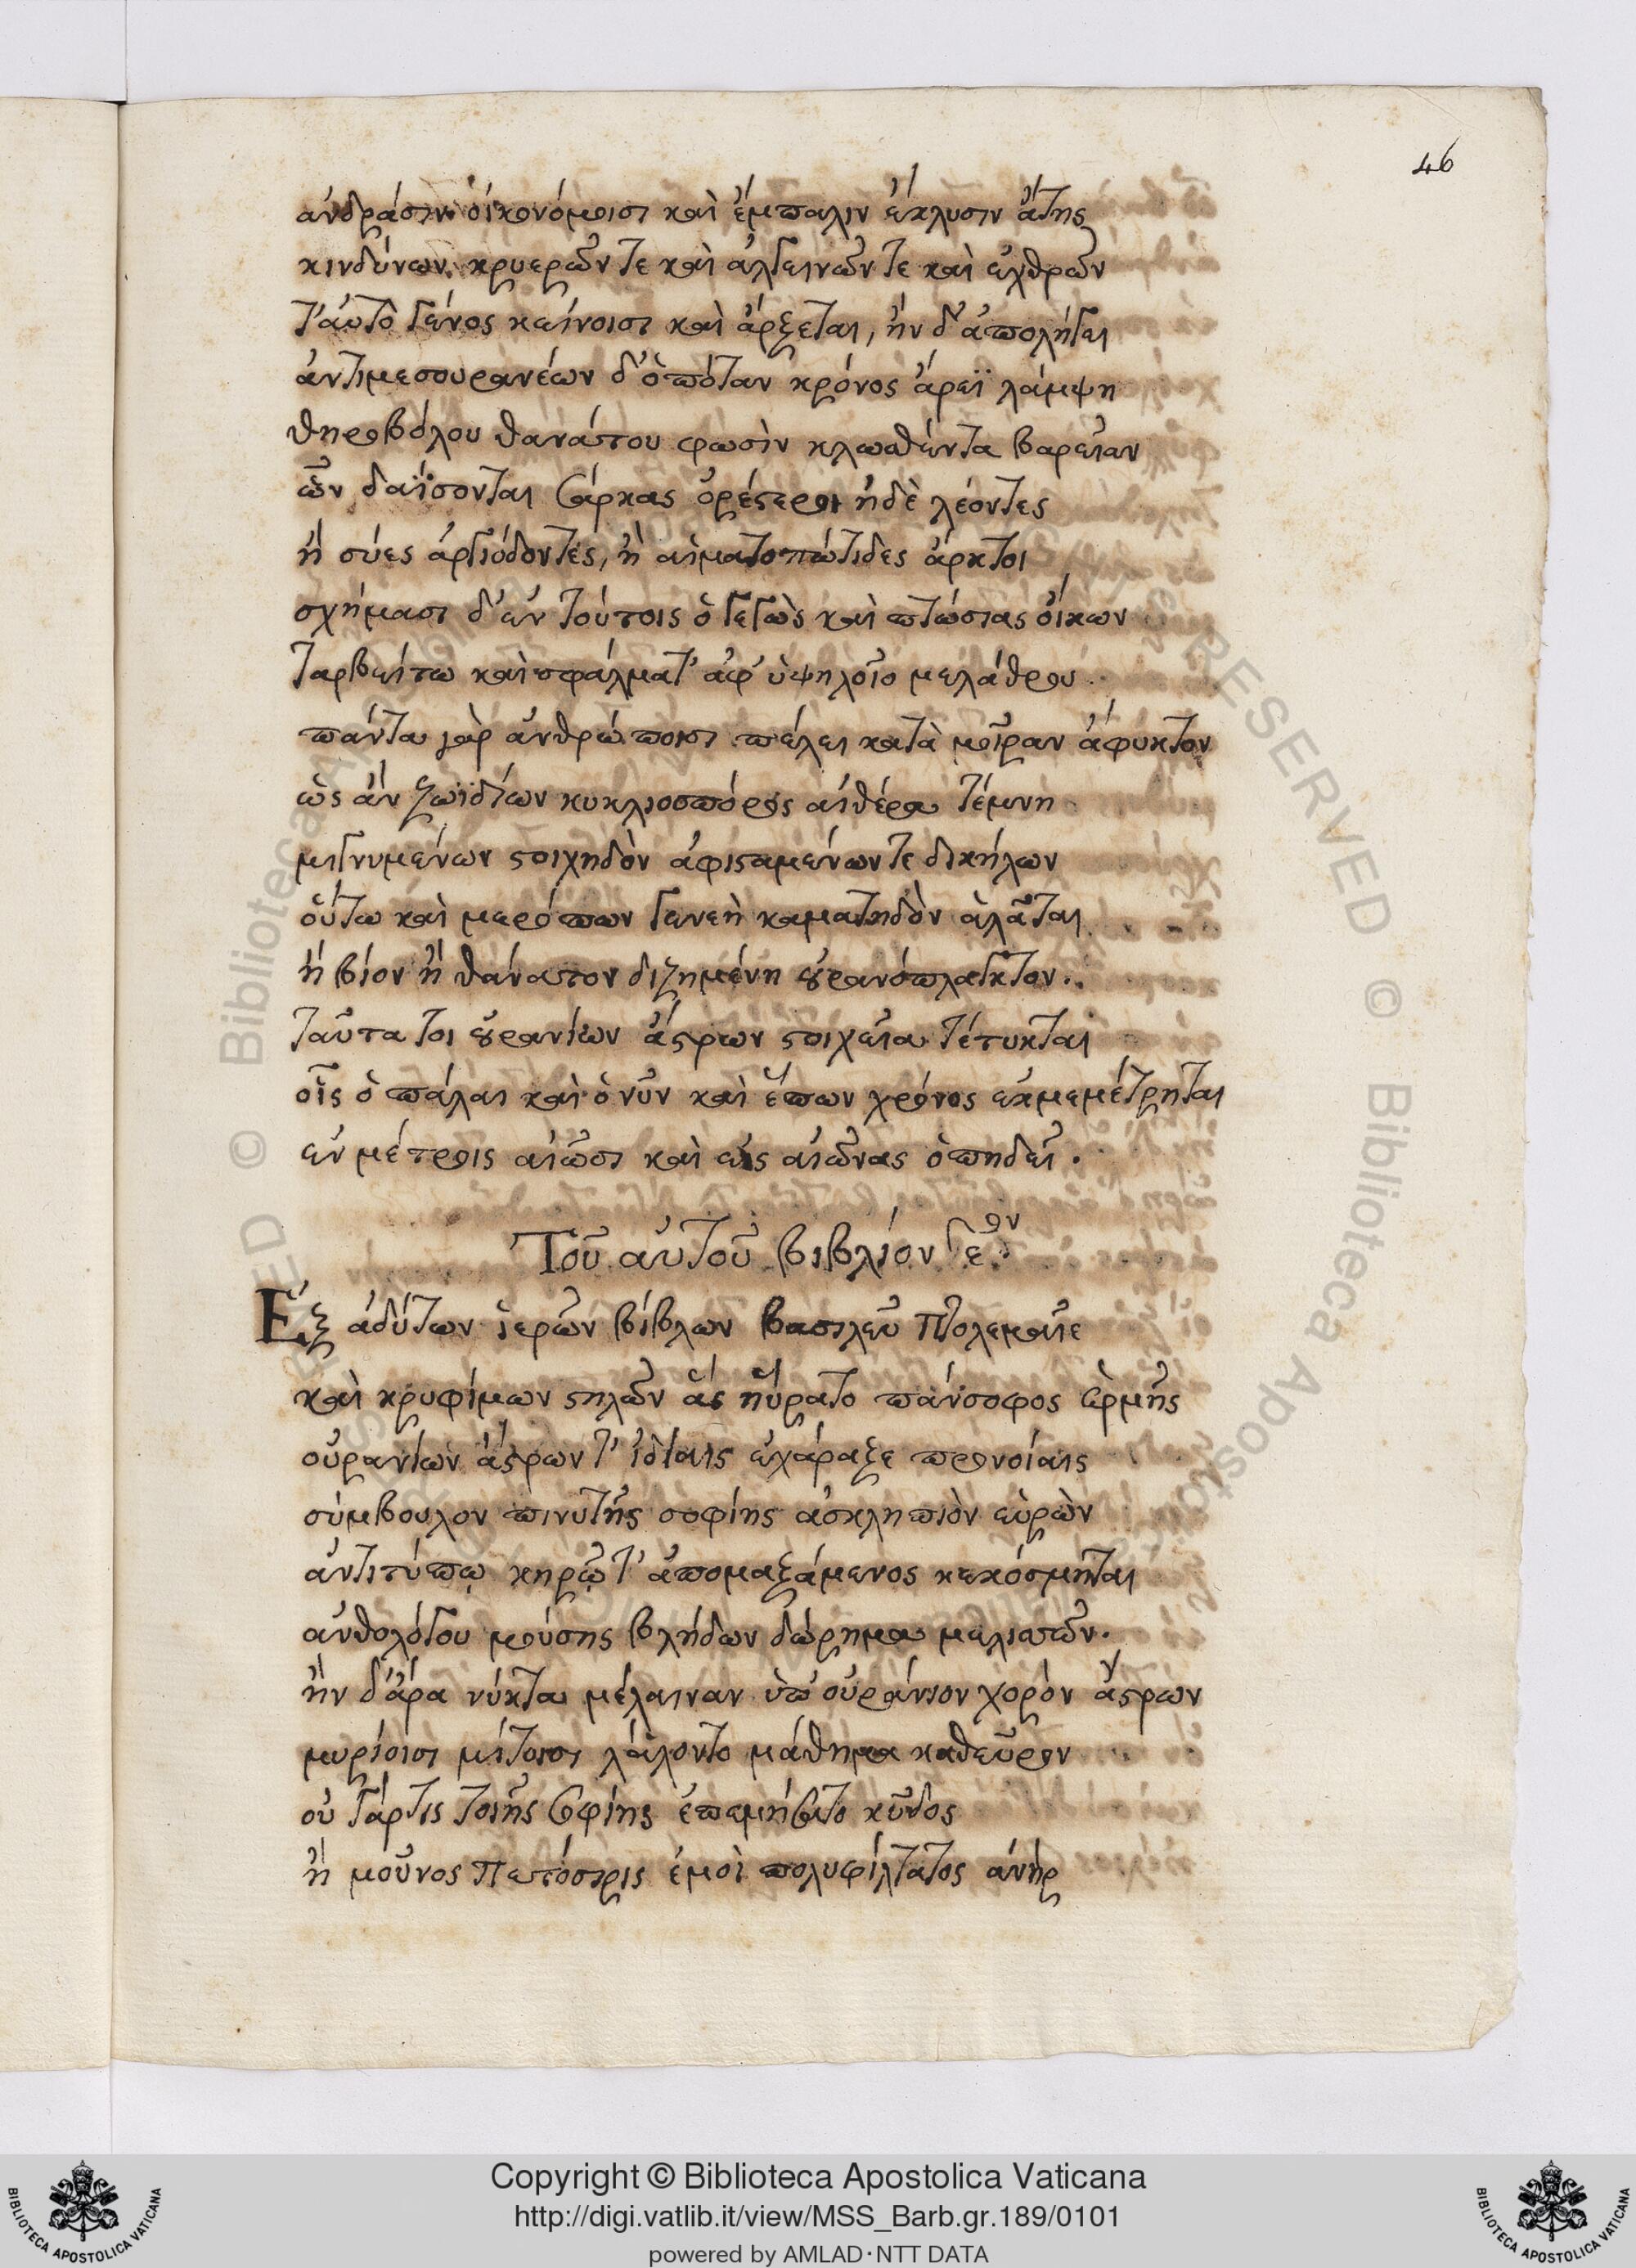 46
ἀνδράσιν οἰκονόμοισι καὶ ἔμπαλιν ἔκλυσιν ἄτης
κινδύνων κρυερῶν τε καὶ ἀλγεινῶν τε καὶ ἐχθρῶν
τ'αὐτὸ γένος κείνοισι καὶ ἄρξεται, ἣν δ' ἀπολήγει
ἀντιμεσουρανέων δ' ὁπόταν κρόνος ἄρεϊ λάμψη
θηροβόλου θανάτου φωσὶν κλωσθέντα βαρεῖαν
ὧν δαΐσονται σάρκας ὀρέστεροι ἠδὲ λέοντες
ἢ σύες ἀργιόδοντες, ἢ αἱματοπώτιδες ἄρκτοι
σχήμασι δ' ἐν τούτοις ὁ γεγὼς καὶ πτώσιας οἴκων
ταρβείτω καὶ σφάλματ' ἀφ' ὑψηλοῖο μελάθρου
πάντα γὰρ ἀνθρώποισι πέλει κατὰ μοῖραν ἄφυκτον
ὡς ἂν ζωϊδίων κυκλιοσπόρος αἰθέρα τέμνη
μιγνυμένων στοιχηδὸν ἀφισταμένων τε δικήλων
οὕτω καὶ μερόπων γενεὴ καματηδὸν ἀλᾶται
ἢ βίον ἢ θάνατον διζημένη οὐρανόπλαγκτον.
ταῦτα τοι οὐρανίων ἄστρων στοιχεῖα τέτυκται
οἷς ὁ πάλαι καὶ ὁ νῦν καὶ ἔπων χρόνος ἐκμεμέτρηται
ἐν μέτροις αἰῶσι καὶ εἰς αἰῶνας ὀπηδεῖ.
Τοῦ αὐτοῦ βιβλίον ε ον
Ἐξ ἀδύτων ἱερῶν βίβλων βασιλεῦ Πτολεμαῖε
καὶ κρυφίμων στηλῶν ἃς ηὕρατο πάνσοφος ἑρμῆς
οὐρανίων ἄστρων τ' ἰδίαις ἐχάραξε προνοίαις
σύμβουλον πινυτῆς σοφίης ἀσκληπιὸν εὑρὼν
ἀντιτύπῳ κηρῷ τ' ἀπομαξάμενος κεκόσμηται
ἀνθολόγου μούσης βλήδων δώρημα μελισσῶν.
ἢν δ' ἄρα νύκτα μέλαιναν ὑπ' οὐράνιον χορὸν ἄστρων
μυρίοισι μίτοισι λάλοντο μάθημα καθεῦρον
οὐ γάρ τις τοιῆς σοφίης ἐπεμήσατο κῦδος
ἢ μοῦνος Πετόσιρις ἐμοὶ πολυφίλτατος ἀνήρ
Copyright © Biblioteca Apostolica Vaticana
http://digi.vatlib.it/view/MSS_Barb.gr.189/0101
powered by AMLAD·NTT DATA